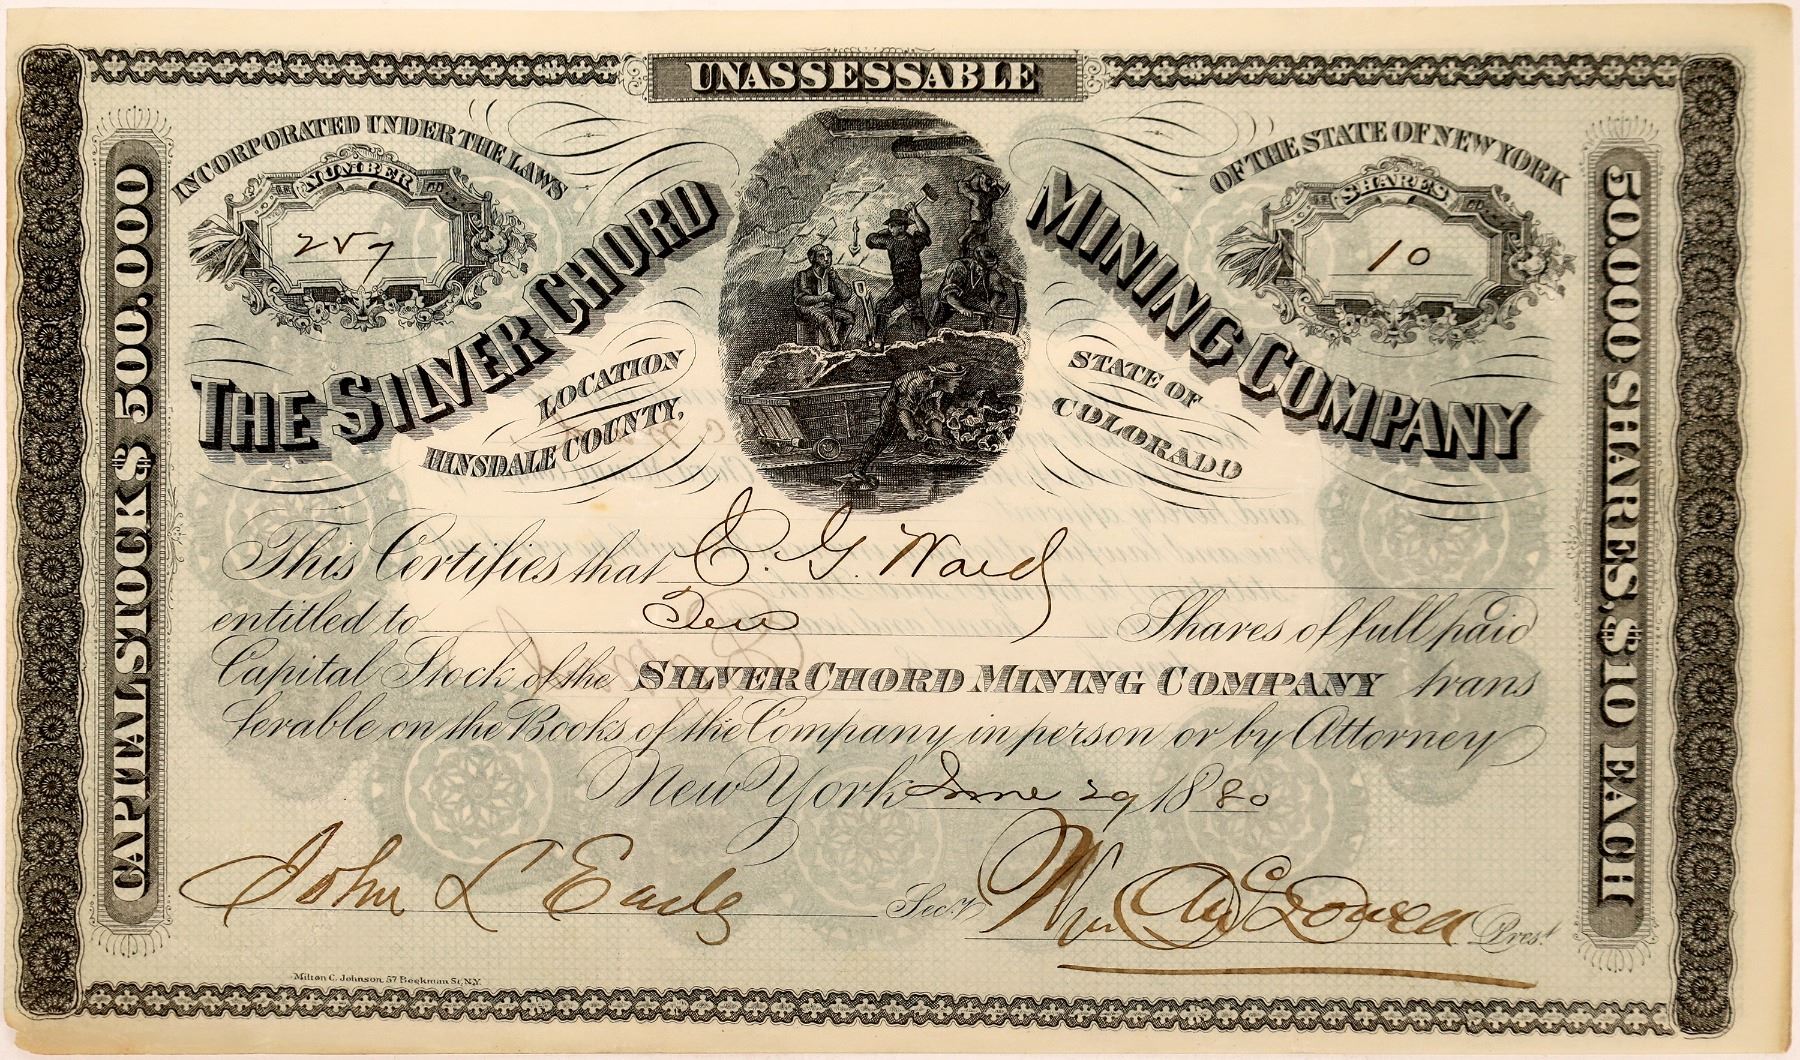 UNASSESSABLE
INCORPORATED UNDER THE LAWS
OF THE STATE OF NEW YORK
NUMBER
257
SHARES
10
THE SILVER CHORD MINING COMPANY
LOCATION
HINSDALE COUNTY,
STATE OF
COLORADO
CAPITAL STOCK $ 500.000
50.000 SHARES, $10 EACH
This Certifies that E. G. Ward
entitled to Ten Shares of full paid
Capital Stock of the SILVER CHORD MINING COMPANY trans
ferable on the Books of the Company in person or by Attorney
New York June 29 1880
John L Sec.y
Wm Prest
Milton C. Johnson, 57 Beekman St, N.Y.